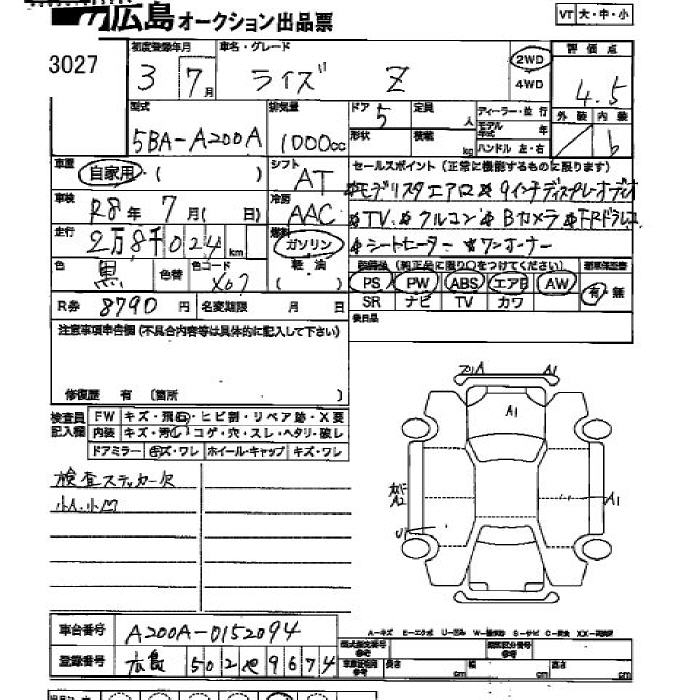 広島オークション出品票
VT 大・中・小
3027
初度登録年月 車名・グレード 評価点
3 7月 ライズ Z 2WD 4WD 4.5
型式 排気量 ドア 定員 ディーラー・並行 外装 内装
5BA-A200A 1000cc 5 人 モデル年式 年 b
形状 積載 kg ハンドル 左・右
車歴 自家用・( ) シフト AT セールスポイント(正常に機能するものに限ります)
車検 R8年 7月( 日) 冷房 AAC
モデリスタエアロ 9インチディスプレーオーディオ
TV クルコン Bカメラ FRドラレコ
シートヒーター ワンオーナー
走行 2万8千024km 燃料 ガソリン・(軽・油)
色 黒 色替 色コード X07
装備品(純正品に限り○をつけてください) 新車保証書
PS PW ABS エアB AW 有・無
SR ナビ TV カワ
R券 8790円 名変期限 月 日
後日品
注意事項申告欄(不具合内容等は具体的に記入して下さい)
修復歴 有 〔箇所 〕
検査員記入欄
FW キズ・飛石・ヒビ割・リペア跡・X要
内装 キズ・汚れ・コゲ・穴・スレ・ヘタリ・破レ
ドアミラー キズ・ワレ ホイール・キャップ キズ・ワレ
検査ステッカー欠
小A.小凹
A1
A1
A2
A1
車台番号 A200A-0152094
登録番号 広島 502 9674
A-キズ E-エクボ U-凹み
長さ cm 幅 cm 高さ cm